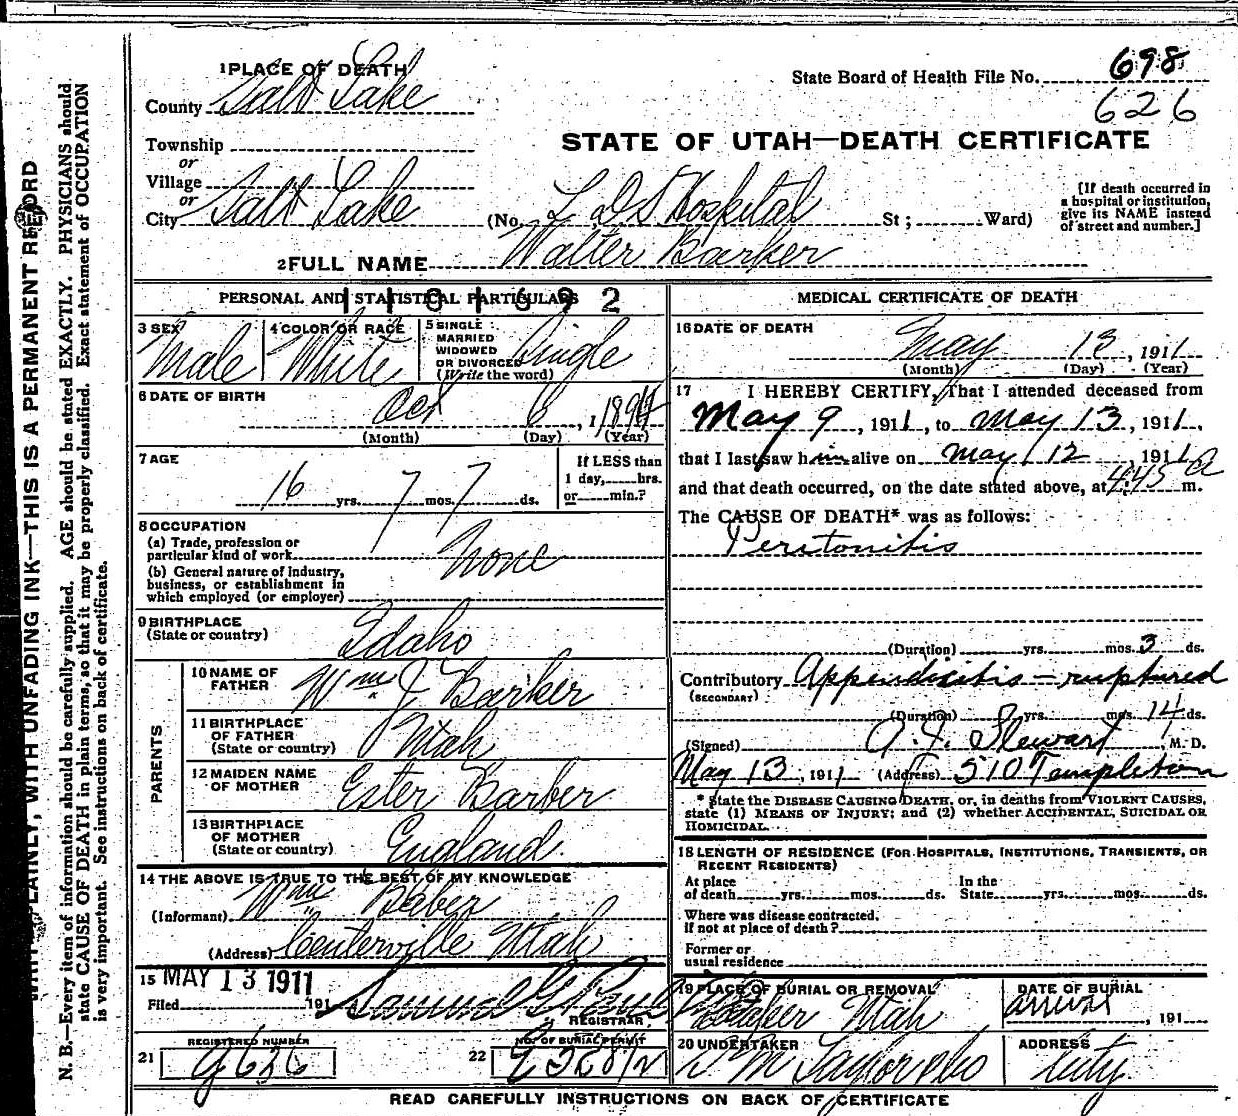 WRITE PLAINLY, WITH UNFADING INK—THIS IS A PERMANENT RECORD
N. B.—Every item of information should be carefully supplied. AGE should be stated EXACTLY. PHYSICIANS should
state CAUSE OF DEATH in plain terms, so that it may be properly classified. Exact statement of OCCUPATION
is very important. See instructions on back of certificate.
1 PLACE OF DEATH
County Salt Lake
Township
or
Village
or
City Salt Lake
State Board of Health File No. 698
626
STATE OF UTAH—DEATH CERTIFICATE
(No. L D S Hospital St ; Ward)
[If death occurred in
a hospital or institution,
give its NAME instead
of street and number.]
2 FULL NAME Walter Barker
PERSONAL AND STATISTICAL PARTICULARS
3 SEX Male
4 COLOR OR RACE White
5 SINGLE
MARRIED
WIDOWED
OR DIVORCED
(Write the word) Single
6 DATE OF BIRTH Oct 6, 1894
(Month) (Day) (Year)
7 AGE
16 yrs. 7 mos. 7 ds.
If LESS than
1 day, hrs.
or min.?
8 OCCUPATION
(a) Trade, profession or
particular kind of work None
(b) General nature of industry,
business, or establishment in
which employed (or employer)
9 BIRTHPLACE
(State or country) Idaho
PARENTS
10 NAME OF
FATHER Wm J Barker
11 BIRTHPLACE
OF FATHER
(State or country) Utah
12 MAIDEN NAME
OF MOTHER Ester Barber
13 BIRTHPLACE
OF MOTHER
(State or country) England.
14 THE ABOVE IS TRUE TO THE BEST OF MY KNOWLEDGE
(Informant) Wm
(Address) Centerville Utah
15 MAY 13 1911
Filed 191 Samuel G Paul
REGISTRAR.
REGISTERED NUMBER
21 g636
NO. OF BURIAL PERMIT
22
MEDICAL CERTIFICATE OF DEATH
16 DATE OF DEATH
May 13, 1911
(Month) (Day) (Year)
17 I HEREBY CERTIFY, That I attended deceased from
May 9, 1911, to May 13, 1911,
that I last saw him alive on May 12, 1911
and that death occurred, on the date stated above, at 4:45 A m.
The CAUSE OF DEATH* was as follows:
Peritonitis
(Duration) yrs. mos. 3 ds.
Contributory Appendicitis - ruptured
(SECONDARY)
(Duration) yrs. mos. 14 ds.
(Signed) Stewart, M. D.
May 13, 1911 (Address) 510 Templeton
* State the DISEASE CAUSING DEATH, or, in deaths from VIOLENT CAUSES,
state (1) MEANS OF INJURY; and (2) whether ACCIDENTAL, SUICIDAL OR
HOMICIDAL.
18 LENGTH OF RESIDENCE (FOR HOSPITALS, INSTITUTIONS, TRANSIENTS, OR
RECENT RESIDENTS)
At place
of death yrs. mos. ds. In the
State yrs. mos. ds.
Where was disease contracted.
if not at place of death?
Former or
usual residence
19 PLACE OF BURIAL OR REMOVAL
Utah
DATE OF BURIAL
arrival, 191
20 UNDERTAKER
S M Taylor & Co
ADDRESS
City.
READ CAREFULLY INSTRUCTIONS ON BACK OF CERTIFICATE